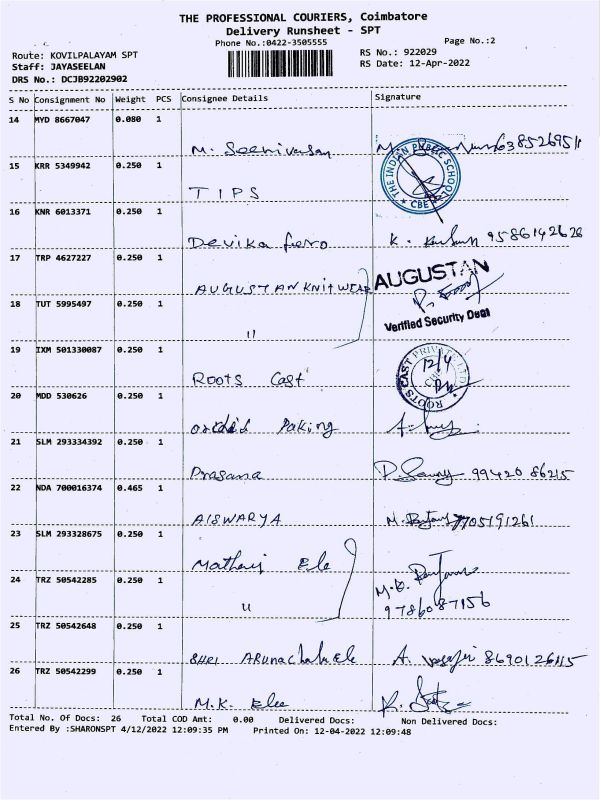 THE PROFESSIONAL COURIERS, Coimbatore
Delivery Runsheet - SPT
Phone No.:0422-3505555 Page No.:2
Route: KOVILPALAYAM SPT RS No.: 922029
Staff: JAYASEELAN RS Date: 12-Apr-2022
DRS No.: DCJB92202902
S No Consignment No Weight PCS Consignee Details Signature
14 MYD 8667047 0.080 1
M. Seenivasan 6385269511
15 KRR 5349942 0.250 1
TIPS THE INDIAN PUBLIC SCHOOL CBE
16 KNR 6013371 0.250 1
Devika ferro K. 9586142628
17 TRP 4627227 0.250 1
AUGUSTAN KnitWEAR AUGUSTAN
18 TUT 5995497 0.250 1
" Verified Security Dept
19 IXM 501330087 0.250 1
Roots Cast ROOTS CAST PRIVATE LTD 12/4
20 MDD 530626 0.250 1
orchid Paking
21 SLM 293334392 0.250 1
Prasana 99420 86215
22 NDA 700016374 0.465 1
AISWARYA M. 7705191261
23 SLM 293328675 0.250 1
Ele
24 TRZ 50542285 0.250 1
" 9786087156
25 TRZ 50542648 0.250 1
SHRI Ele A.
26 TRZ 50542299 0.250 1
M.K. Elee
Total No. Of Docs: 26 Total COD Amt: 0.00 Delivered Docs: Non Delivered Docs:
Entered By :SHARONSPT 4/12/2022 12:09:35 PM Printed On: 12-04-2022 12:09:48